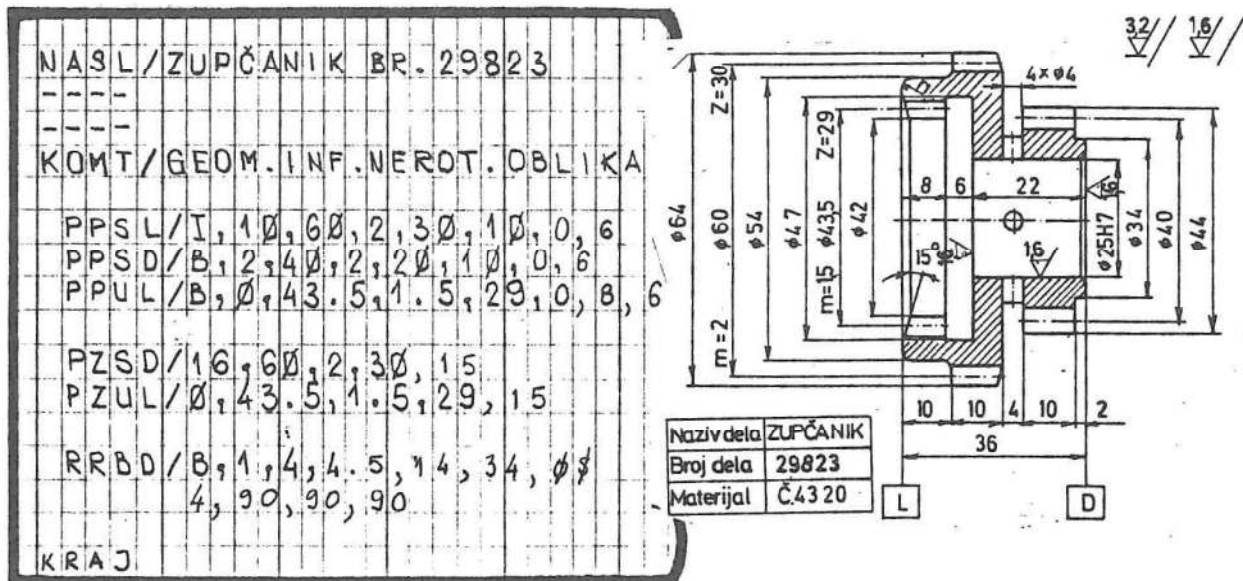 NASL/ZUPČANIK BR.29823
----
----
KOMT/GEOM.INF.NEROT.OBLIKA
PPSL/I,1Ø,6Ø,2,3Ø,1Ø,0,6
PPSD/B,2,4Ø,2,2Ø,1Ø,0,6
PPUL/B,Ø,43.5,1.5,29,0,8,6
PZSD/16,6Ø,2,3Ø,15
PZUL/Ø,43.5,1.5,29,15
RRBD/B,1,4,4.5,14,34,Ø$
4,90,90,90
KRAJ
3,2 1,6
4×ø4
ø64
ø60
Z=30
m=2
ø54
ø47
Z=29
ø43,5
m=15
ø42
8 6 22
15°
1,6
ø25H7
ø34
ø40
ø44
10 10 4 10 2
36
L D
Naziv dela ZUPČANIK
Broj dela 29823
Materijal Č.4320